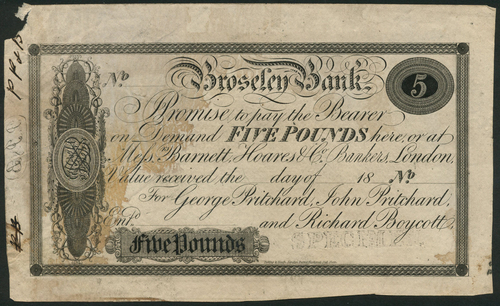 No
Broseley Bank.
5
I Promise to pay the Bearer
on Demand FIVE POUNDS here, or at
Messrs Barnett, Hoares & Co. Bankers, London,
Value received the day of 18 No
For George Pritchard, John Pritchard,
Entd and Richard Boycott,
Five Pounds
SPECIMEN